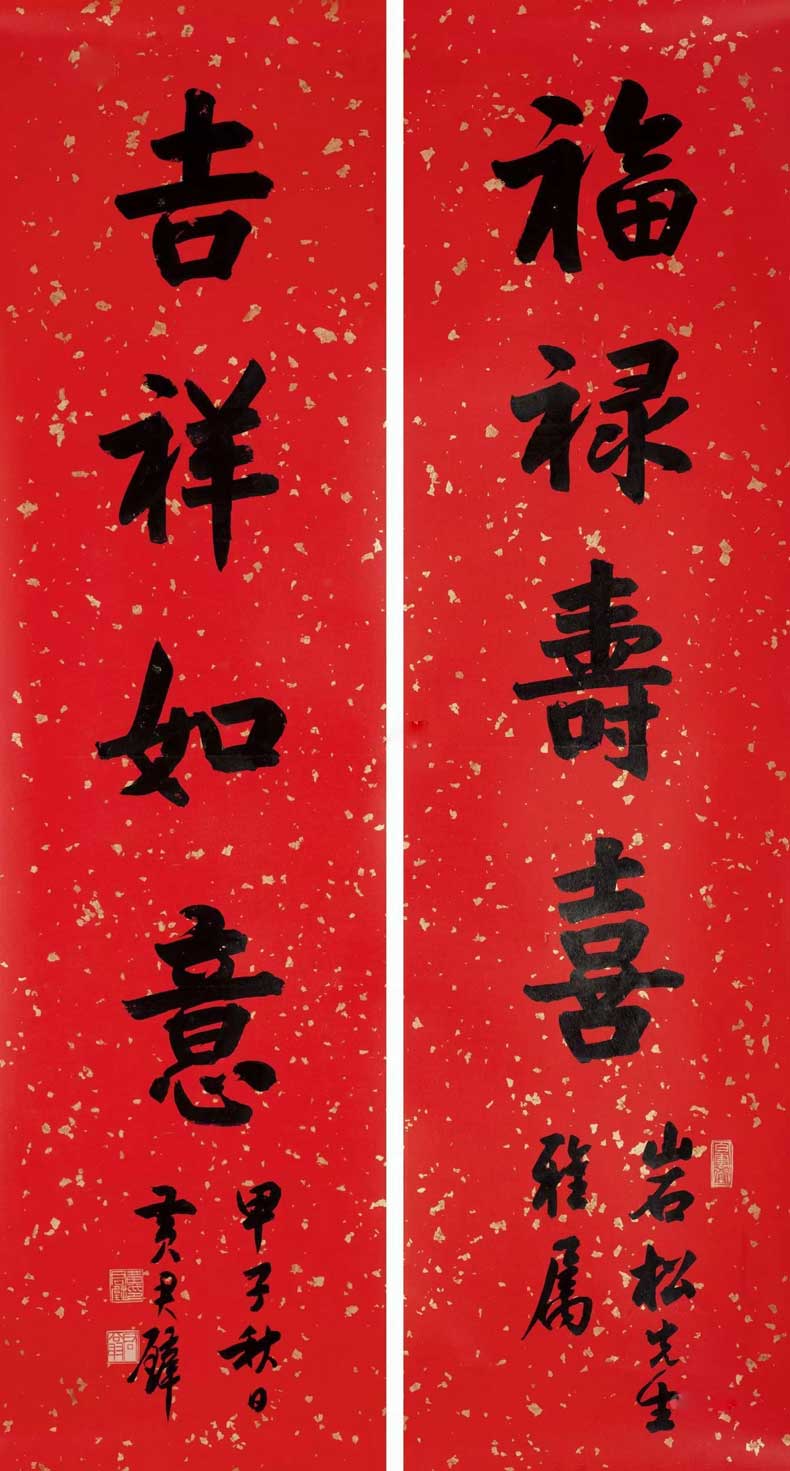 福禄壽喜
岩松先生
雅属
吉祥如意
甲子秋日
黄君璧